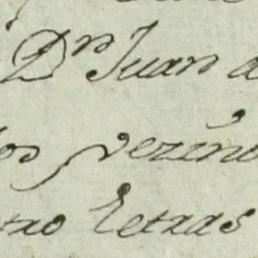 Dn Juan a
los vezino
tro Letras